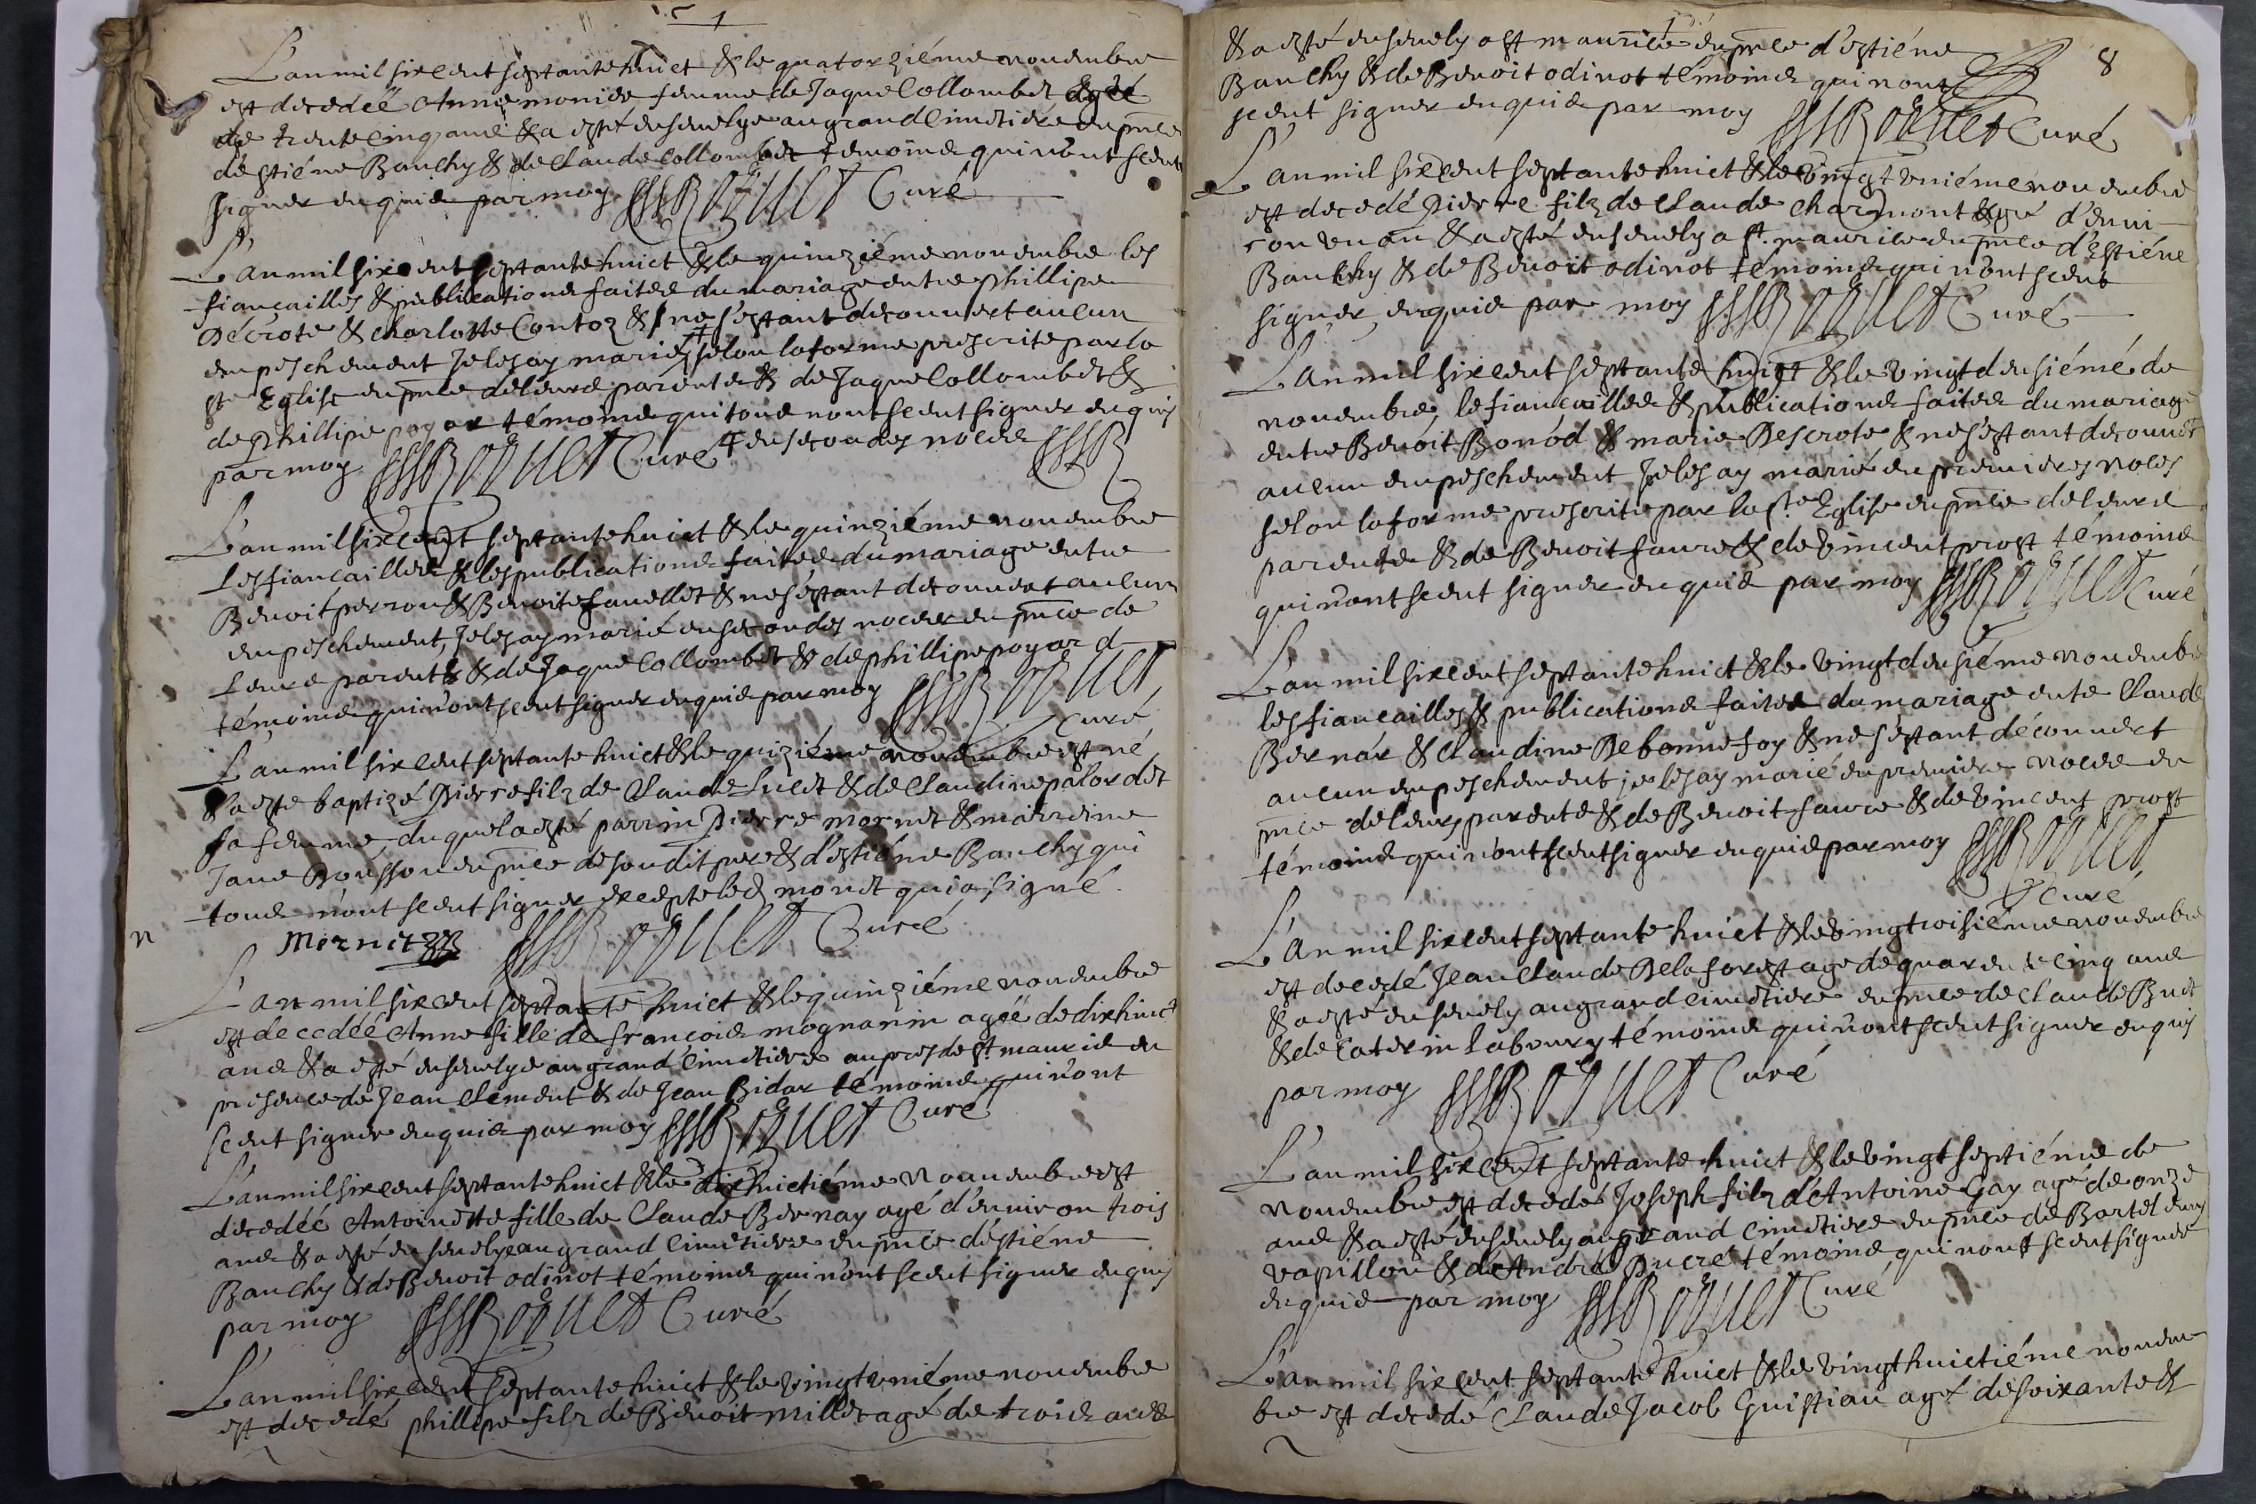 1
L'an mil six cent septante huict & le quatorziéme novembre
est decedéé Anne monier femme de Jaque Collombet agéé
de trente cinq ans & a esté ensevelye au grand cimetiére en pnce
d'estiéne Bauchy & de Claude Collombet temoins qui n'ont sceut
signer enquis par moy Curé
L'an mil six cent septante huict & le quinziéme novembre les
fiancailles & publications faites du mariage entre phillipe
Décrote & charlotte Contoz & ne s'estant decouvert aucun
empeschement Je les ay marié selon la forme prescrite par la
ste Eglise en pnce de leurs parents & de Jaque Collombet &
de phillipe poyar témoins qui tous n'ont sceut signer enquis
par moy Curé + en secondes noces
L'an mil six cent septante huict & le quinziéme novembre
Les fiancailles & les publications faites du mariage entre
Benoit perron & Benoite favellet & ne s'estant decouvert aucun
empeschement, Je les ay marié en secondes noces en pnce de
Leurs parents & de Jaque Collombet & de phillipe poyard
témoins qui n'ont sceut signer enquis par moy
Curé
L'an mil six cent septante huict & le quiziéme novembre est né
& a esté baptizé Pierre filz de Claude Luct & de Claudine palordet
sa femme, duquel a esté parrin Pierre mornet & mairrine
Jane Bousson en pnce de soudit pere & d'estiéne Bauchy qui
tous n'ont sceut signer excepte led mornet qui a signé.
n
Mornet Curé
L'an mil six cent septante huict & le quinziéme novembre
est decedéé Anne fille de francois mognanin agéé de dix huict
ans & a esté ensevelye au grand cimetiere aupres de st maurice en
presence de Jean Clement & de Jean Bidar témoins qui n'ont
sceut signer enquis par moy Curé
L'an mil six cent septante huict & le dix huictiéme Novembre est
decedéé Antoinette fille de Claude Bernay agé d'environ trois
ans & a esté ensevelye au grand cimetiere en pnce d'éstiéne
Bauchy & de Benoit odinot témoins qui n'ont sceut signer enquis
par moy Curé
L'an mil six cent septante huict & le vingt uniéme novembre
est decedé phillipe filz de Benoit millet agé de trois ans
8
& a esté ensevely a st maurice en pnce d'estiéne
Bauchy & de Benoit odinot témoins qui n'ont
sceut signer enquis par moy Curé
L'an mil six cent septante huict & le vingt uniéme novembre
est decedé Pierre filz de Claude charmont agé d'envi-
ron un an & a esté ensevely a st. maurice en pnce d'Estiéne
Bauchy & de Benoit odinot témoins qui n'ont sceut
signer, enquis par moy Curé
L'an mil six cent septante huict & le vingt deusiéme de
novembre, le fiancailles & publications faites du mariage
entre Benoit Bonod & marie Descrote & ne s'estant decouvert
aucun empeschement Je les ay marié en premieres noces
selon la forme prescrite par la ste Eglise en pnce de leurs
parents & de Benoit faure & de vincent prost témoins
qui n'ont sceut signer enquis par moy Curé
L'an mil six cent septante huict & le vingt deusiéme novembre
les fiancailles & publications faites du mariage ente Claude
Bernar & Claudine Debonnefoy & ne s'estant découvert
aucun empeschement, je les ay marié en premiere noces en
pnce de leurs parents & de Benoit faure & de vincent prost
témoins qui n'ont sceut signer enquis par moy
Curé
L'an mil six cent septante huict & le vingtroisiéme novembre
est decedé Jean Claude Delaforest agé de quarente cinq ans
& a esté ensevely au grand cimetiere en pnce de Claude But
& de Caterin Laboury témoins qui n'ont sceut signer enquis
par moy Curé
L'an mil six cent septante huict & le vingt septiéme de
novembre est decedé Joseph filz d'Antoine Gay agé de onze
ans & a esté ensevely au grand cimetiere en pnce de Bartelemy
vapillon & de André Ducré témoins qui n'ont sceut signer
enquis par moy Curé
L'an mil six cent septante huict & le vingt huictiéme novem
bre est decedé Claude Jacob Guistian agé de soixante &